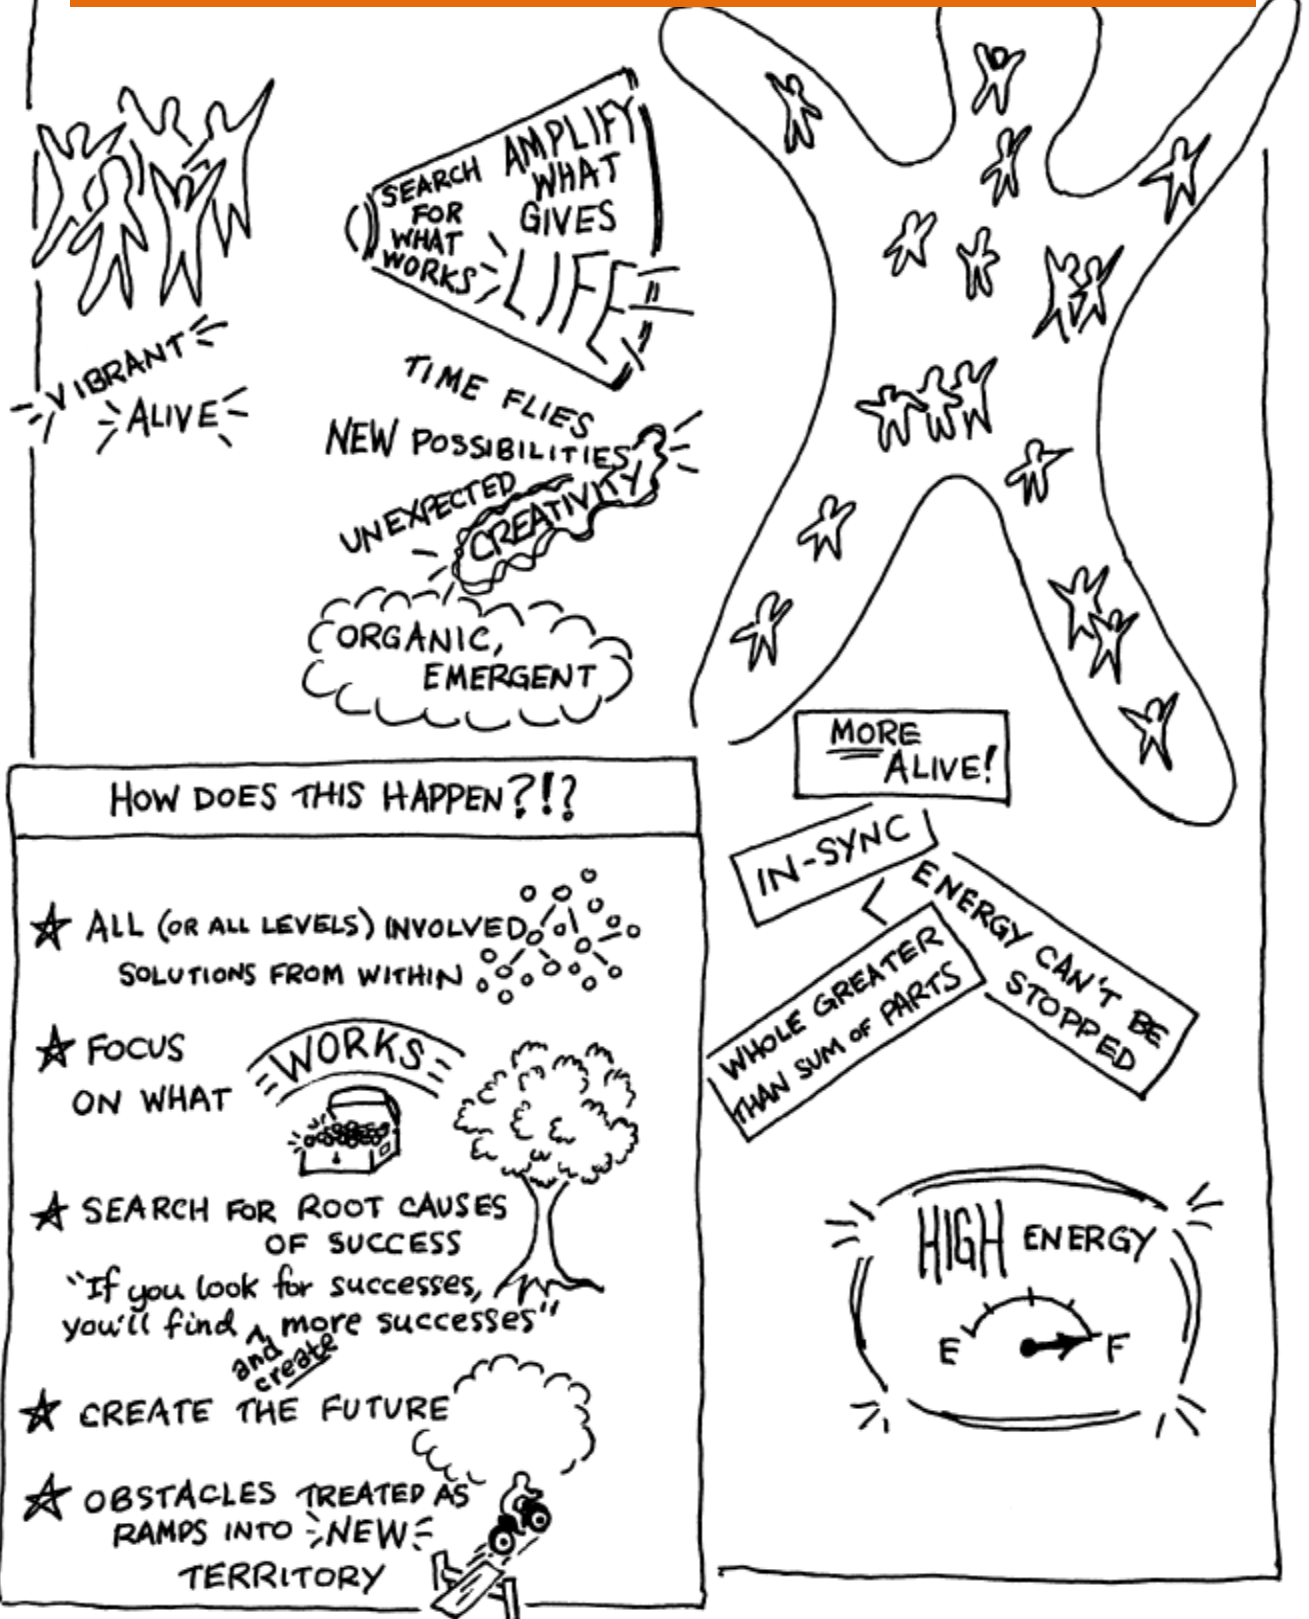 VIBRANT
ALIVE
SEARCH
FOR
WHAT
WORKS
AMPLIFY
WHAT
GIVES
LIFE
TIME FLIES
NEW POSSIBILITIES
UNEXPECTED
CREATIVITY
ORGANIC,
EMERGENT
MORE
ALIVE!
IN-SYNC
ENERGY CAN'T BE
STOPPED
WHOLE GREATER
THAN SUM OF PARTS
HIGH ENERGY
E F
HOW DOES THIS HAPPEN?!?
ALL (OR ALL LEVELS) INVOLVED
SOLUTIONS FROM WITHIN
FOCUS
ON WHAT
WORKS
SEARCH FOR ROOT CAUSES
OF SUCCESS
"If you look for successes,
you'll find ^ more successes"
and
create
CREATE THE FUTURE
OBSTACLES TREATED AS
RAMPS INTO NEW
TERRITORY